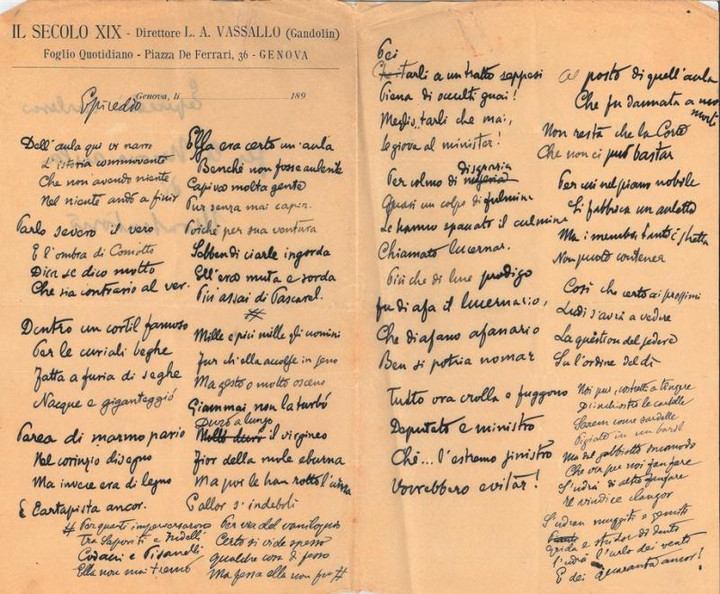 IL SECOLO XIX - Direttore L. A. VASSALLO (Gandolin)
Foglio Quotidiano - Piazza De Ferrari, 36 - GENOVA
Genova, li 189
Epicedio
Dell'aula qui vi narro
L'istoria commovente
Che non avendo niente
Nel niente andò a finir
Parlo severo il vero
E l'ombra di Comotto
Dica se dico motto
Che sia contrario al ver.
Dentro un cortil famoso
Per le curiali beghe
Fatta a furia di seghe
Nacque e giganteggiò
Parea di marmo pario
Nel corinzio disegno
Ma invece era di legno
E cartapista ancor.
Ella era certo un'aula
Benchè non fosse aulente
Capiva molta gente
Pur senza mai capir.
Poichè per sua ventura
Sebben di ciarle ingorda
Ell'era muta e sorda
Più assai di Pascarel.
#
Mille e più mille gli uomini
Fur ch'ella accolse in seno
Ma gesto o motto osceno
Giammai, non la turbò
Durò a lungo
il virgineo
Fior della mole eburna
Ma poi le han rotto l'urna
Pallor s'indebolì
# Per quanti imperversarono
Tra Saporiti e
Cosacri e Pisanelli
Ella non mai tremò
Per via del vaniloquio
Certo si vide spesso
qualche cosa di fesso
Ma fessa ella non fu #
Pei
tarli a un tratto seppesi
Piena di occulti guai!
Meglio tarli che mai,
Le giova al minister!
Per colmo di disgrazia
Quasi un colpo di fulmine
Le hanno spaccato il culmine
Chiamato lucernar.
Più che di luce prodigo
fu di afa il lucernario,
Che diafano afanario
Ben si potria nomar
Tutto ora crolla e fuggono
Deputato e ministro
Chè... l'estremo sinistro
Vorrebbero evitar!
Al posto di quell'aula
Che fu dannata a morte
Non resta che la Corte
Che non ci può bastar
Per cui nel piano nobile
Si fabbrica un'auletta
Ma i membri, tanto è stretta
Non puote contener
Così che certo ai prossimi
Ludi s'avrà a vedere
La question del sedere
Su l'ordine del dì
Noi pur, costretti a tergere
D'inchiostro le cartelle
Sarem come sardelle
Pigiati in un baril
Ma dal gabbiotto incomodo
Che ora per noi fan fare
S'udrà di alto
Il vindice clangor
S'udran muggiti e gemiti
Grida e stridor di denti
S'udrà l'urlo dei venti
E dei quaranta ancor!